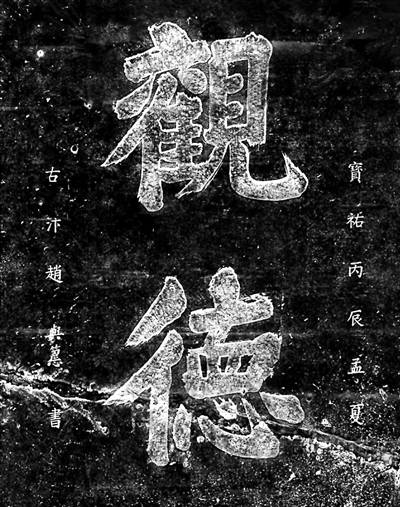 寶祐丙辰孟夏
觀德
古汴趙與書